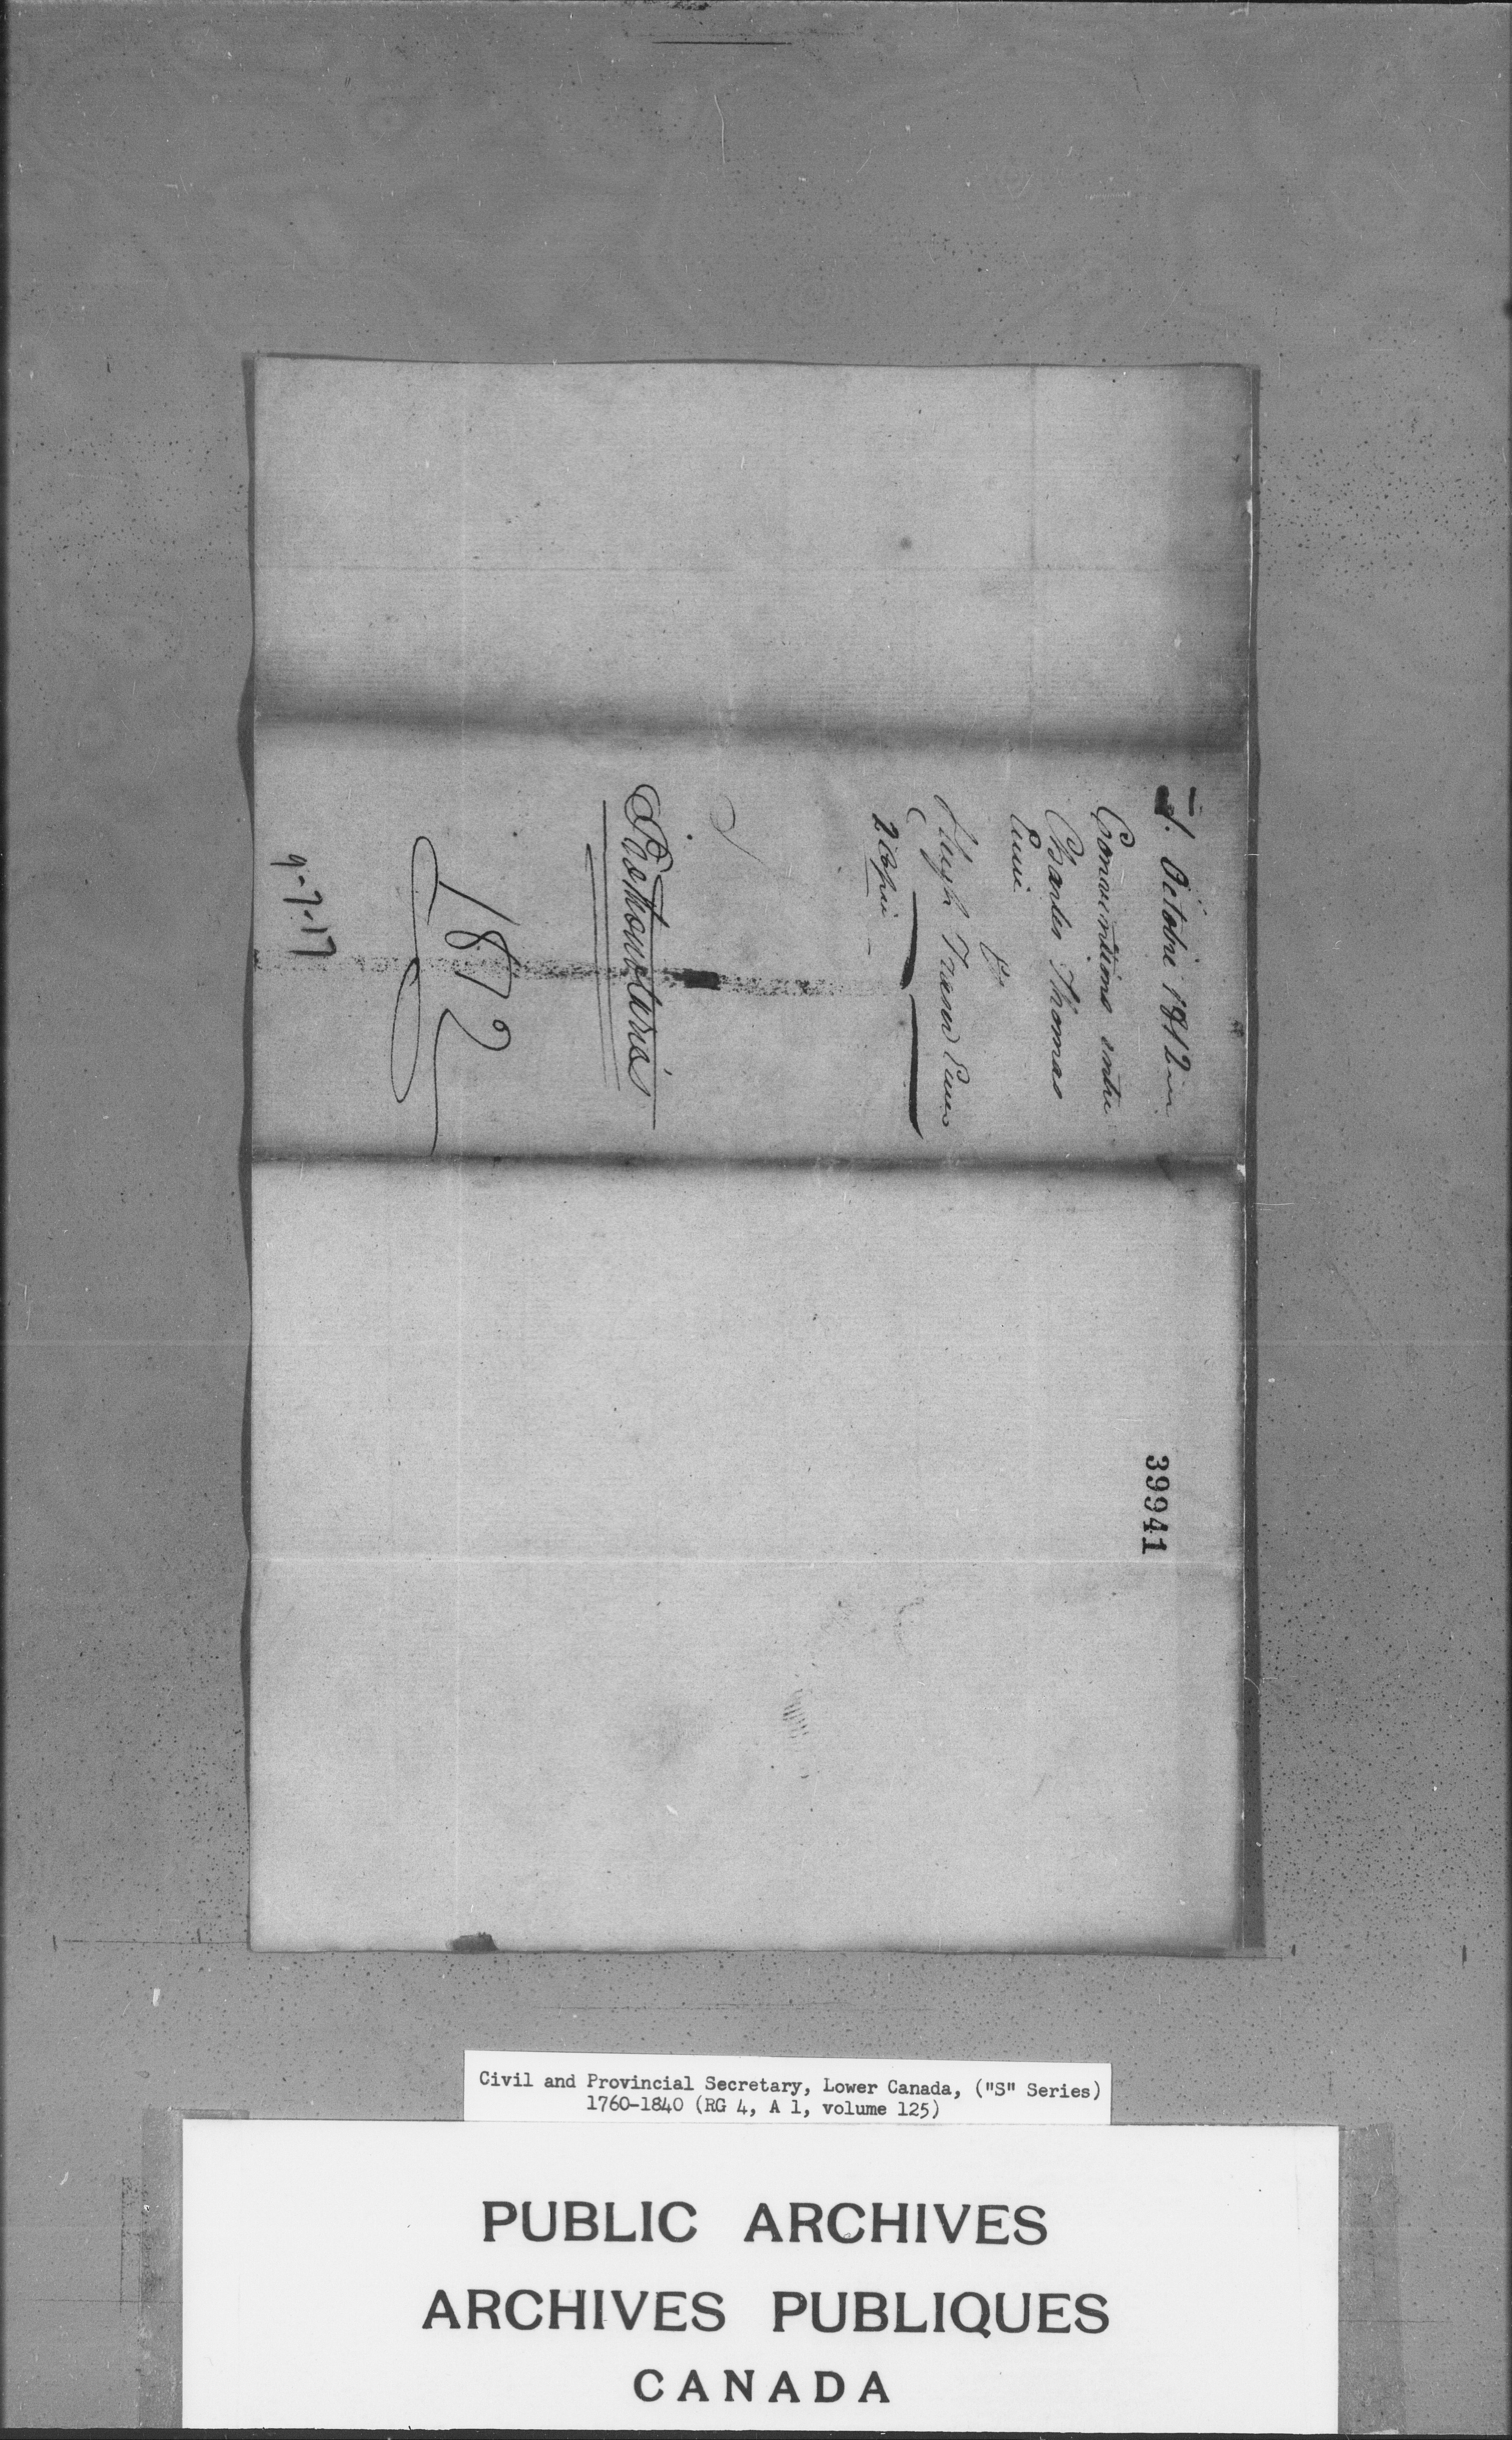 1. Octobre 1812
Conventions entre
Charles Thomas
&
Hugh
2 Copie
1812
9-7-17
39941
Civil and Provincial Secretary, Lower Canada, ("S" Series)
1760-1840 (RG 4, A 1, volume 125)
PUBLIC ARCHIVES
ARCHIVES PUBLIQUES
CANADA